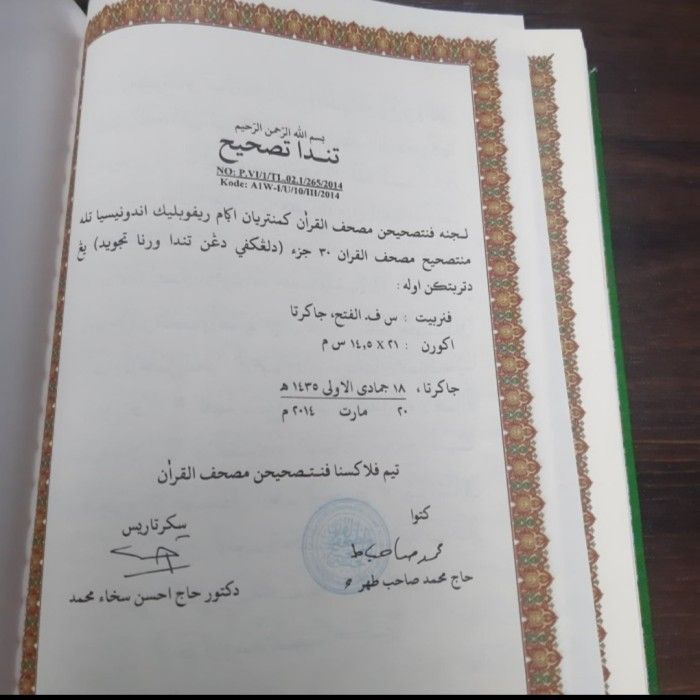 بسم الله الرحمن الرحيم
تندا تصحيح
NO: P.VI/1/TL.02.1/265/2014
Kode: A1W-I/U/10/III/2014
لجنه فنتصحيحن مصحف القرأن کمنتريان اڬام ريفوبليك اندونيسيا تله
منتصحيح مصحف القران ٣٠ جزء (دلڠکفي دڠن تندا ورنا تجويد) يڠ
دتربتکن اوله :
فنربيت : س ف. الفتح، جاکرتا
اکورن : ٢١ X ١٤,٥ س م
جاکرتا، ١٨ جمادى الاولى ١٤٣٥ ﻫ
٢٠ مارت ٢٠١٤ م
تيم فلاکسنا فنتصحيحن مصحف القرأن
کتوا
سکرتاريس
حاج محمد صاحب طهر
دکتور حاج احسن سخاء محمد